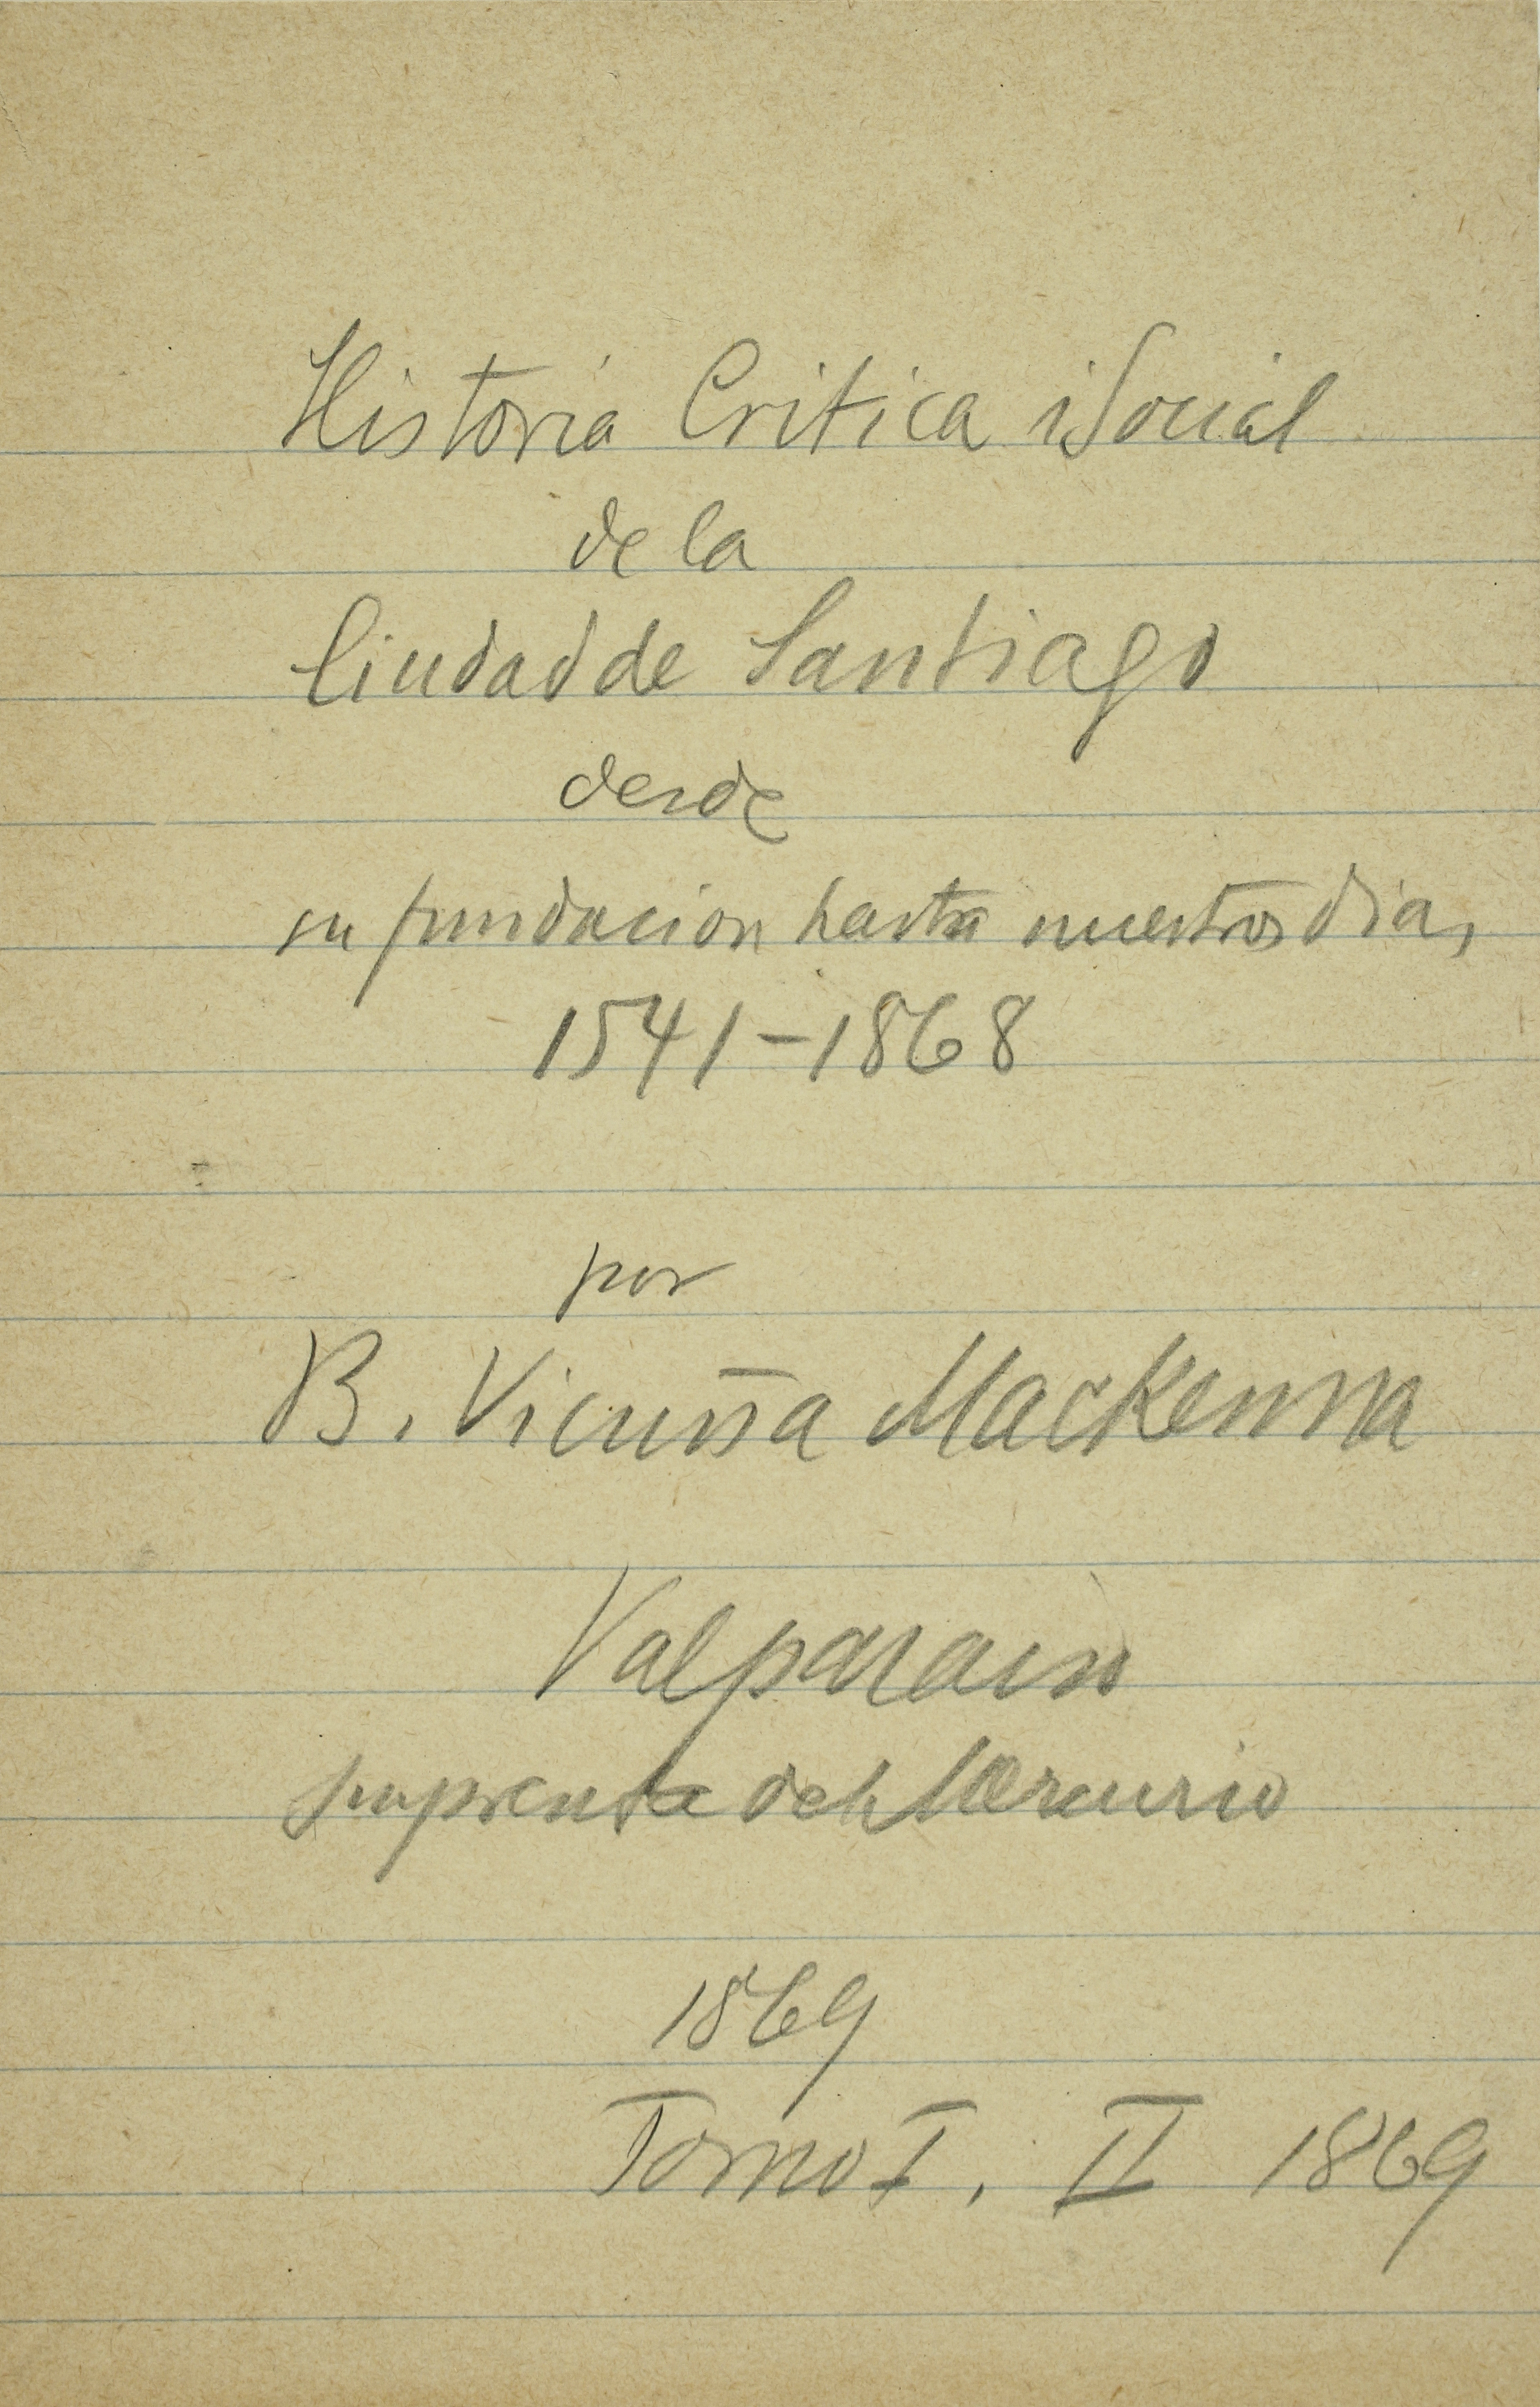 Historia Critica i Social
de la
Ciudad de Santiago
desde
su fundacion hasta nuestros dias
1541-1868
por
B. Vicuña Mackenna
Valparaiso
Imprenta del Mercurio
1869
Tomo I. II 1869